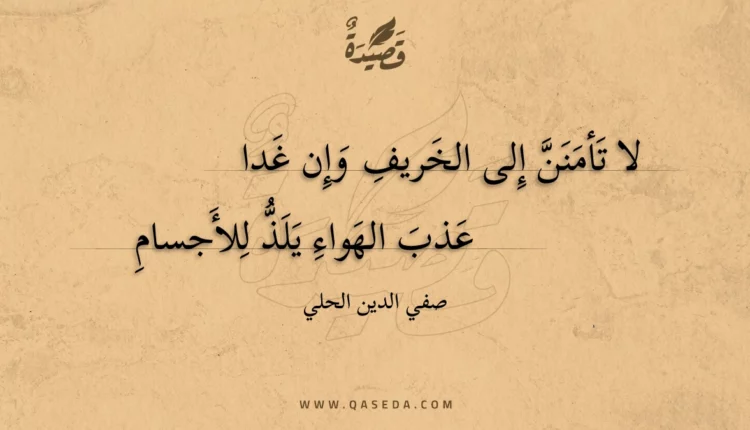 قَصِيْدَةٌ
لا تَأمَنَنَّ إِلى الخَريفِ وَإِن غَدا
عَذبَ الهَواءِ يَلَذُّ لِلأَجسامِ
صفي الدين الحلي
WWW.QASEDA.COM